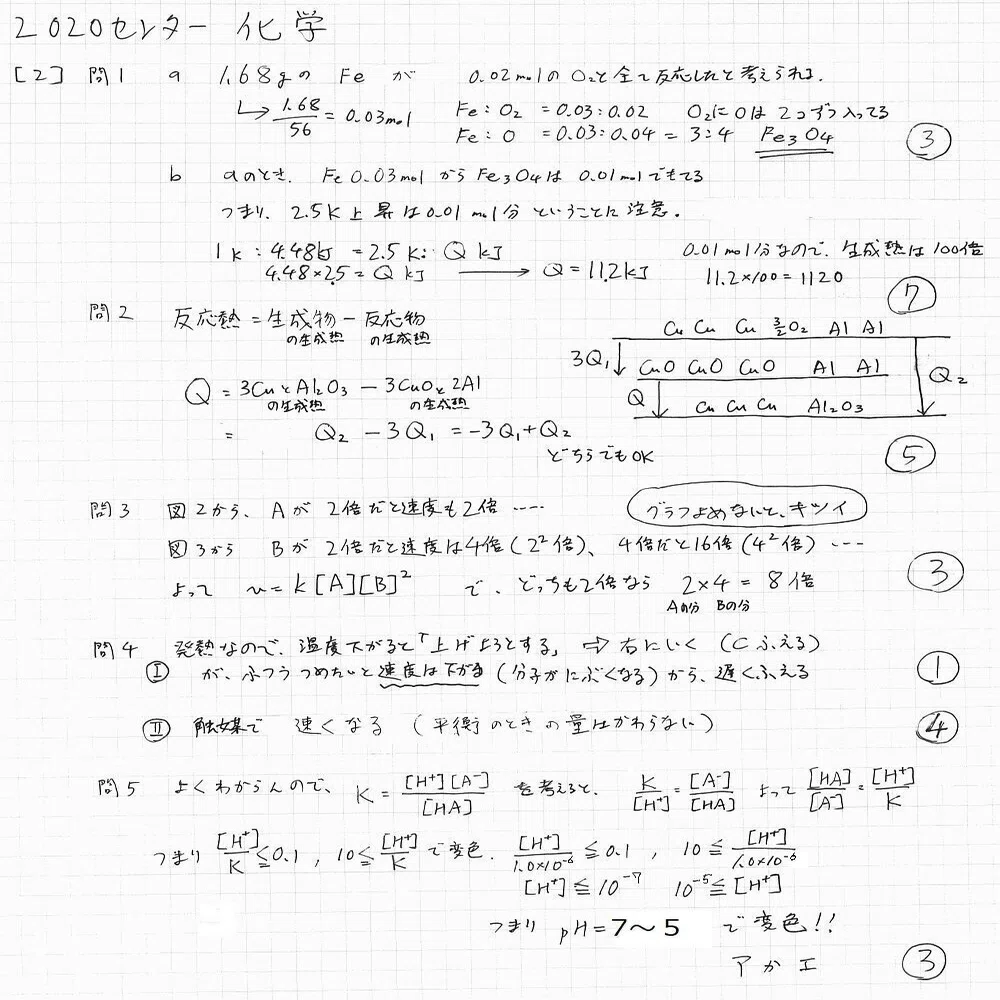 2020センター 化学
[2] 問1 a 1.68gの Fe が 0.02molのO₂と全て反応したと考えられる.
↳ 1.68/56 = 0.03mol Fe:O₂ = 0.03:0.02 O₂にOは2つずつ入ってる
Fe:O = 0.03:0.04 = 3:4 Fe₃O₄ ③
b aのとき、Fe 0.03mol から Fe₃O₄は 0.01molできてる
つまり、2.5K上昇は0.01mol分ということに注意。
1K:4.48kJ = 2.5K:Q kJ 0.01mol分なので、生成熱は100倍
4.48×2.5=Q kJ → Q=11.2kJ 11.2×100=1120
⑦
問2 反応熱=生成物の生成熱−反応物の生成熱
Cu Cu Cu 3/2O₂ Al Al
3Q₁ CuO CuO CuO Al Al Q₂
Q Cu Cu Cu Al₂O₃
Q = 3CuとAl₂O₃の生成熱 − 3CuOと2Alの生成熱
= Q₂ − 3Q₁ = −3Q₁+Q₂
どちらでもOK ⑤
問3 図2から、Aが2倍だと速度も2倍 …… グラフよめないと、キツイ
図3から Bが2倍だと速度は4倍(2²倍)、4倍だと16倍(4²倍) ……
よって v=k[A][B]² で、どっちも2倍なら 2×4=8倍 ③
Aの分 Bの分
問4 発熱なので、温度下がると「上げようとする」 ⇒ 右にいく (Cふえる)
Ⅰ が、ふつうつめたいと速度は下がる (分子がにぶくなる)から、遅くふえる ①
Ⅱ 触媒で 速くなる (平衡のときの量はかわらない) ④
問5 よくわからんので、K=[H⁺][A⁻]/[HA] を考えると、K/[H⁺]=[A⁻]/[HA] よって [HA]/[A⁻]=[H⁺]/K
つまり [H⁺]/K≦0.1, 10≦[H⁺]/K で変色. [H⁺]/1.0×10⁻⁶ ≦0.1, 10≦[H⁺]/1.0×10⁻⁶
[H⁺]≦10⁻⁷ 10⁻⁵≦[H⁺]
つまり pH=7〜5 で変色!!
アかエ ③